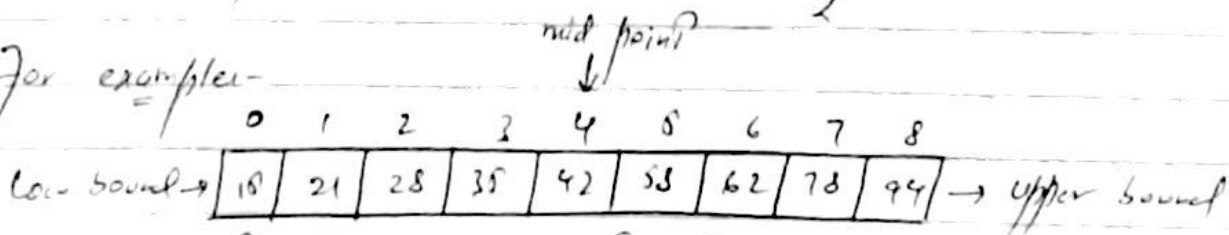 2
mid point
For example:-
0 1 2 3 4 5 6 7 8
Low bound → 15 21 28 35 42 58 62 78 94 → Upper bound